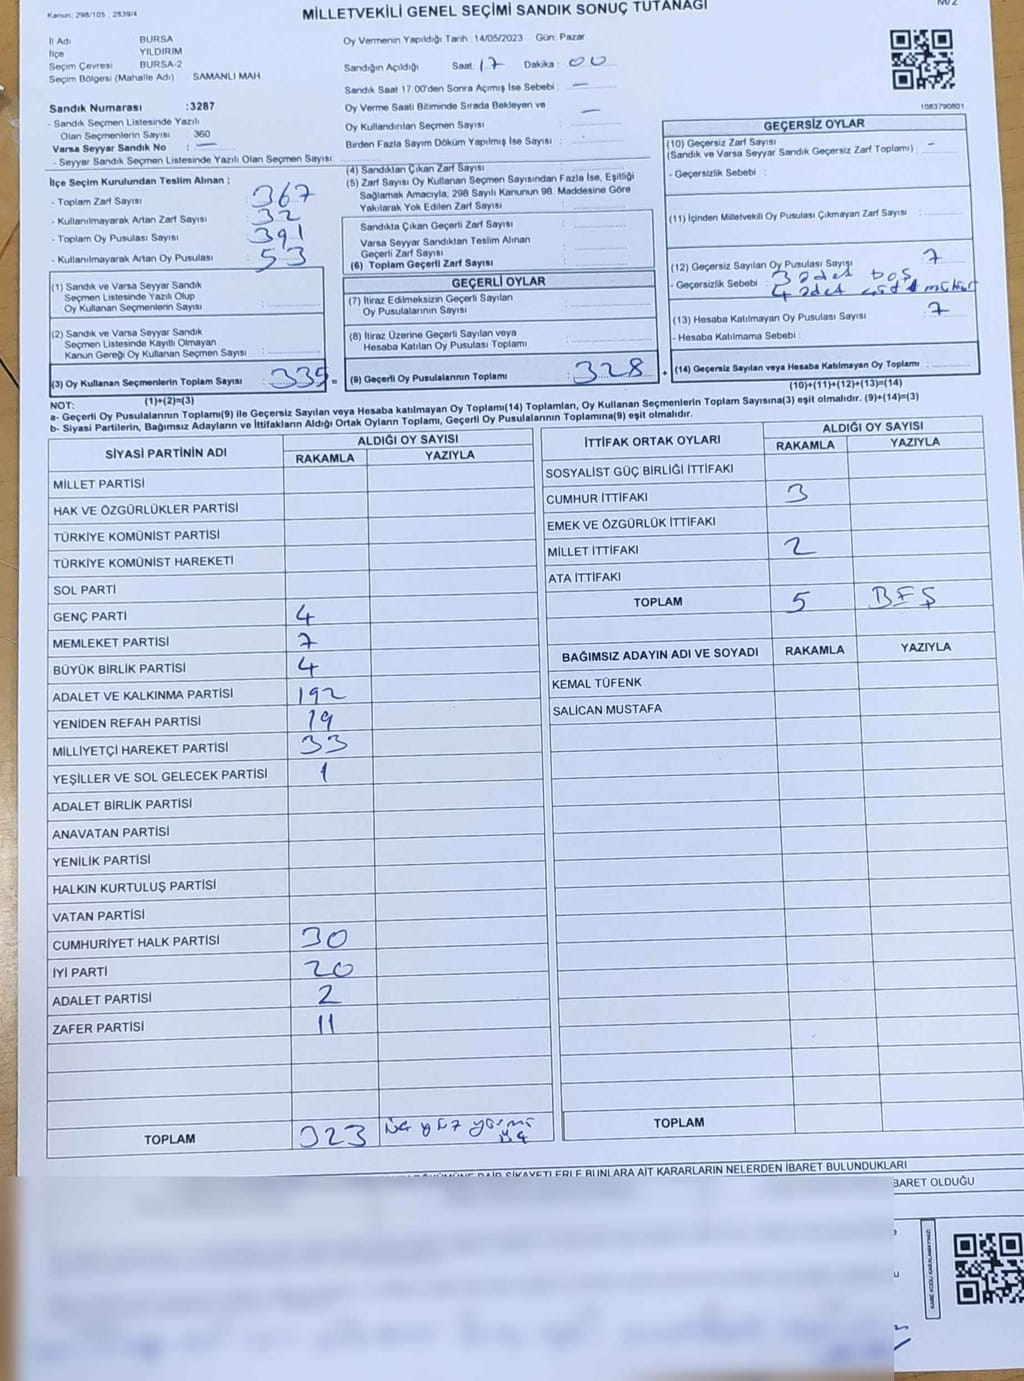 Kanun: 298/105 , 2839/4
MİLLETVEKİLİ GENEL SEÇİMİ SANDIK SONUÇ TUTANAĞI
İl Adı BURSA
İlçe YILDIRIM
Seçim Çevresi BURSA-2
Seçim Bölgesi (Mahalle Adı) SAMANLI MAH.
Sandık Numarası :3287
- Sandık Seçmen Listesinde Yazılı
Olan Seçmenlerin Sayısı : 360
Varsa Seyyar Sandık No : —
- Seyyar Sandık Seçmen Listesinde Yazılı Olan Seçmen Sayısı:
Oy Vermenin Yapıldığı Tarih : 14/05/2023 Gün: Pazar
Sandığın Açıldığı Saat: 17 Dakika : 00
Sandık Saat 17.00'den Sonra Açımış İse Sebebi : —
Oy Verme Saati Bitiminde Sırada Bekleyen ve —
Oy Kullandırılan Seçmen Sayısı :
Birden Fazla Sayım Döküm Yapılmış İse Sayısı :
1083790801
İlçe Seçim Kurulundan Teslim Alınan ;
- Toplam Zarf Sayısı : 367
- Kullanılmayarak Artan Zarf Sayısı : 32
- Toplam Oy Pusulası Sayısı : 391
- Kullanılmayarak Artan Oy Pusulası : 53
(1) Sandık ve Varsa Seyyar Sandık
Seçmen Listesinde Yazılı Olup
Oy Kullanan Seçmenlerin Sayısı :
(2) Sandık ve Varsa Seyyar Sandık
Seçmen Listesinde Kayıtlı Olmayan
Kanun Gereği Oy Kullanan Seçmen Sayısı :
(3) Oy Kullanan Seçmenlerin Toplam Sayısı : 335 =
(1)+(2)=(3)
(4) Sandıktan Çıkan Zarf Sayısı :
(5) Zarf Sayısı Oy Kullanan Seçmen Sayısından Fazla İse, Eşitliği
Sağlamak Amacıyla; 298 Sayılı Kanunun 98. Maddesine Göre
Yakılarak Yok Edilen Zarf Sayısı :
Sandıkta Çıkan Geçerli Zarf Sayısı :
Varsa Seyyar Sandıktan Teslim Alınan
Geçerli Zarf Sayısı :
(6) Toplam Geçerli Zarf Sayısı :
GEÇERLİ OYLAR
(7) İtiraz Edilmeksizin Geçerli Sayılan
Oy Pusulalarının Sayısı :
(8) İtiraz Üzerine Geçerli Sayılan veya
Hesaba Katılan Oy Pusulası Toplamı :
(9) Geçerli Oy Pusulalarının Toplamı : 328 +
GEÇERSİZ OYLAR
(10) Geçersiz Zarf Sayısı
(Sandık ve Varsa Seyyar Sandık Geçersiz Zarf Toplamı) : —
- Geçersizlik Sebebi :
(11) İçinden Milletvekili Oy Pusulası Çıkmayan Zarf Sayısı :
(12) Geçersiz Sayılan Oy Pusulası Sayısı : 7
- Geçersizlik Sebebi : 3 adet boş
4 adet
(13) Hesaba Katılmayan Oy Pusulası Sayısı : 7
- Hesaba Katılmama Sebebi :
(14) Geçersiz Sayılan veya Hesaba Katılmayan Oy Toplamı :
(10)+(11)+(12)+(13)=(14)
NOT:
a- Geçerli Oy Pusulalarının Toplamı(9) ile Geçersiz Sayılan veya Hesaba katılmayan Oy Toplamı(14) Toplamları, Oy Kullanan Seçmenlerin Toplam Sayısına(3) eşit olmalıdır. (9)+(14)=(3)
b- Siyasi Partilerin, Bağımsız Adayların ve İttifakların Aldığı Ortak Oyların Toplamı, Geçerli Oy Pusulalarının Toplamına(9) eşit olmalıdır.
SİYASİ PARTİNİN ADI ALDIĞI OY SAYISI
RAKAMLA YAZIYLA
MİLLET PARTİSİ
HAK VE ÖZGÜRLÜKLER PARTİSİ
TÜRKİYE KOMÜNİST PARTİSİ
TÜRKİYE KOMÜNİST HAREKETİ
SOL PARTİ
GENÇ PARTİ 4
MEMLEKET PARTİSİ 7
BÜYÜK BİRLİK PARTİSİ 4
ADALET VE KALKINMA PARTİSİ 192
YENİDEN REFAH PARTİSİ 19
MİLLİYETÇİ HAREKET PARTİSİ 33
YEŞİLLER VE SOL GELECEK PARTİSİ 1
ADALET BİRLİK PARTİSİ
ANAVATAN PARTİSİ
YENİLİK PARTİSİ
HALKIN KURTULUŞ PARTİSİ
VATAN PARTİSİ
CUMHURİYET HALK PARTİSİ 30
İYİ PARTİ 20
ADALET PARTİSİ 2
ZAFER PARTİSİ 11
TOPLAM 323 üç yüz yirmi üç
İTTİFAK ORTAK OYLARI ALDIĞI OY SAYISI
RAKAMLA YAZIYLA
SOSYALİST GÜÇ BİRLİĞİ İTTİFAKI
CUMHUR İTTİFAKI 3
EMEK VE ÖZGÜRLÜK İTTİFAKI
MİLLET İTTİFAKI 2
ATA İTTİFAKI
TOPLAM 5 BEŞ
BAĞIMSIZ ADAYIN ADI VE SOYADI RAKAMLA YAZIYLA
KEMAL TÜFENK
SALİCAN MUSTAFA
TOPLAM
ŞİKAYETLERLE BUNLARA AİT KARARLARIN NELERDEN İBARET BULUNDUKLARI
BARET OLDUĞU